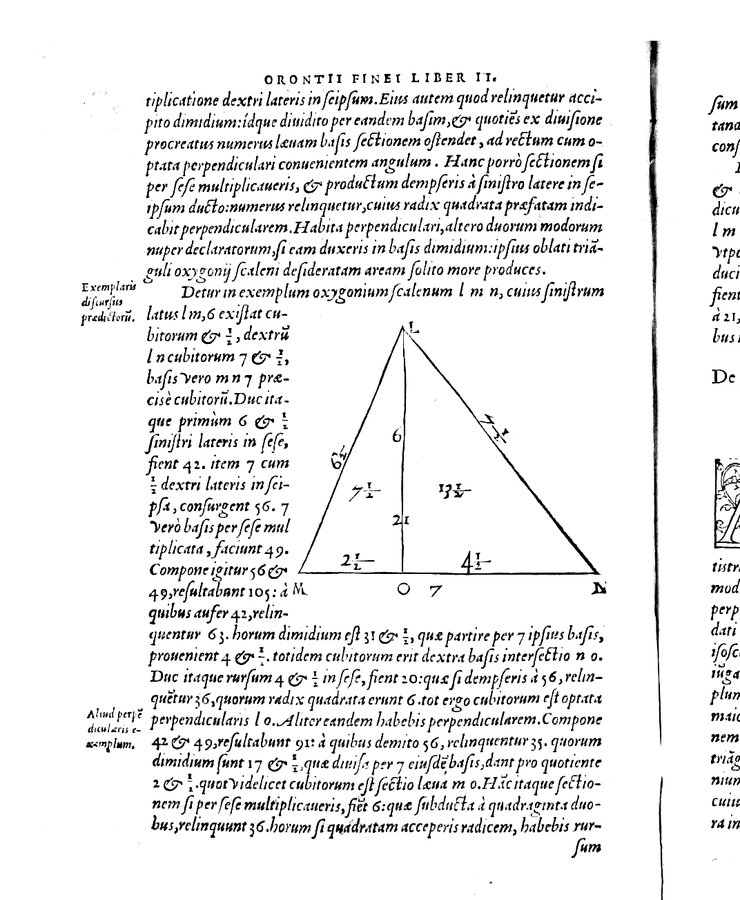 ORONTII FINEI LIBER II.
tiplicatione dextri lateris in seipsum. Eius autem quod relinquetur acci-
pito dimidium: idque diuidito per eandem basim, & quotiēs ex diuisione
procreatus numerus læuam basis sectionem ostendet, ad rectum cum o-
ptata perpendiculari conuenientem angulum. Hanc porrò sectionem si
per sese multiplicaueris, & productum dempseris à sinistro latere in se-
ipsum ducto: numerus relinquetur, cuius radix quadrata præfatam indi-
cabit perpendicularem. Habita perpendiculari, altero duorum modorum
nuper declaratorum, si eam duxeris in basis dimidium: ipsius oblati triā-
guli oxygonij scaleni desideratam aream solito more produces.
Exemplaris
discursus
prædictorū.
Detur in exemplum oxygonium scalenum l m n, cuius sinistrum
latus l m, 6 existat cu-
bitorum & 1/2, dextrū
l n cubitorum 7 & 1/2,
basis vero m n 7 præ-
cisè cubitorū. Duc ita-
que primùm 6 & 1/2
sinistri lateris in sese,
fient 42. item 7 cum
1/2 dextri lateris in sei-
psa, consurgent 56. 7
verò basis per sese mul
tiplicata, faciunt 49.
Compone igitur 56 &
49, resultabunt 105: à
quibus aufer 42, relin-
L
7 1/2
6
7 1/2
13 1/2
21
2 1/2
4 1/2
M
O
7
N
quentur 63. horum dimidium est 31 & 1/2, quæ partire per 7 ipsius basis,
prouenient 4 & 1/2. totidem cubitorum erit dextra basis intersectio n o.
Duc itaque rursum 4 & 1/2 in sese, fient 20: quæ si dempseris à 56, relin-
quētur 36, quorum radix quadrata erunt 6. tot ergo cubitorum est optata
Aliud perpē
dicularis e-
xemplum.
perpendicularis l o. Aliter eandem habebis perpendicularem. Compone
42 & 49, resultabunt 91: à quibus demito 56, relinquentur 35. quorum
dimidium sunt 17 & 1/2, quæ diuisa per 7 eiusdē basis, dant pro quotiente
2 & 1/2. quot videlicet cubitorum est sectio læua m o. Hāc itaque sectio-
nem si per sese multiplicaueris, fiēt 6: quæ subducta à quadraginta duo-
bus, relinquunt 36. horum si quadratam acceperis radicem, habebis rur-
sum
sum
tana
conf
&
dicu
l m
vtpo
duci
fient
à 21,
bus
De
tistri
mod
perp
dati
isosc
iuga
plum
maio
nem
triāg
nium
cuiu
ra in